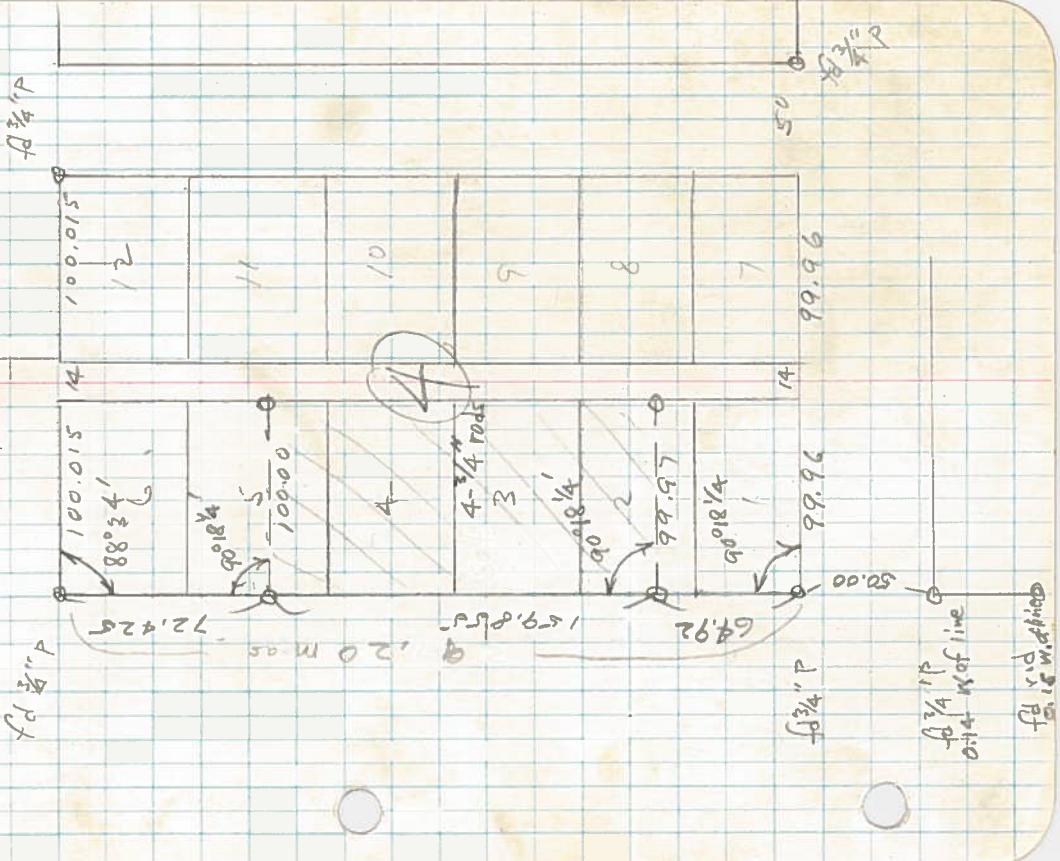 fd 3/4" P
fd 3/4" P
50
100.015
12
11
10
9
8
7
99.96
14
4
14
100.015
88°34'
6
90°18 1/4'
5
100.00
4
4-3/4" rods
3
90°18 1/4'
2
99.97
90°18 1/4
1
99.96
50.00
72.425
159.855
64.92
20 mas
fd 3/4" P
fd 3/4" P
fd 3/4" IP
0.14 of line
fd